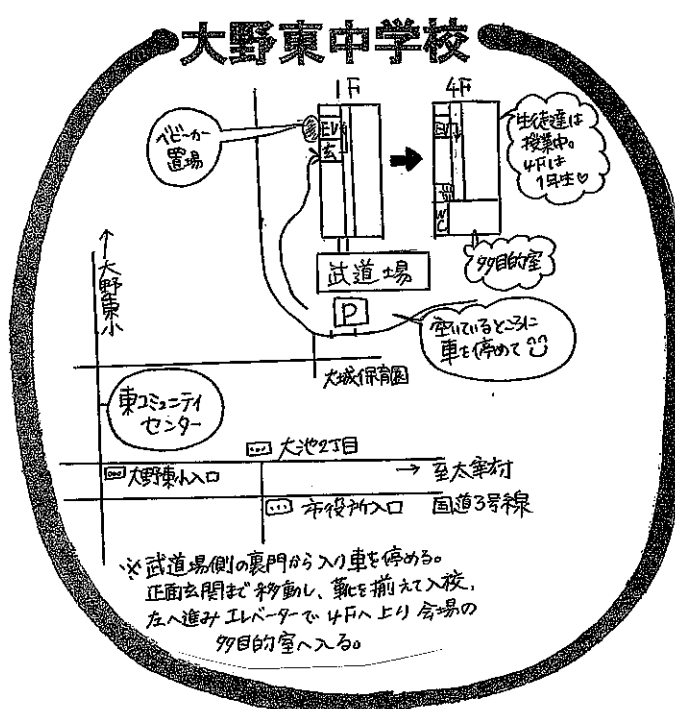 大野東中学校
1F
4F
ベビーカー
置場
EV
玄
EV
WC
生徒達は
授業中。
4Fは
1年生♡
多目的室
武道場
P
空いているところに
車を停めて
↑大野東小
大城保育園
東コミュニティ
センター
大池2丁目
大野東小入口
→ 至太宰府
市役所入口
国道3号線
※武道場側の裏門から入り車を停める。
正面玄関まで移動し、靴を揃えて入校、
左へ進みエレベーターで4Fへ上り会場の
多目的室へ入る。